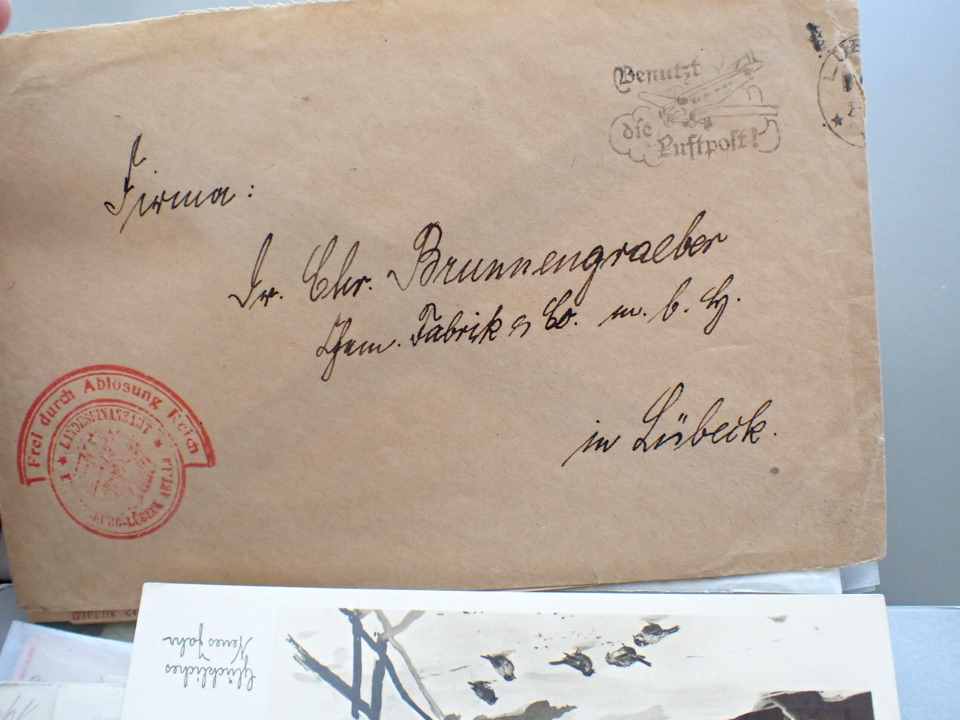 Benutzt
die
Luftpost!
Firma:
Dr. Chr. Brunnengraeber
Chem. Fabrik & Co. m. b. H.
in Lübeck.
Frei durch Ablösung Reich
LANDESFINANZAMT
Glückliches
Neues Jahr